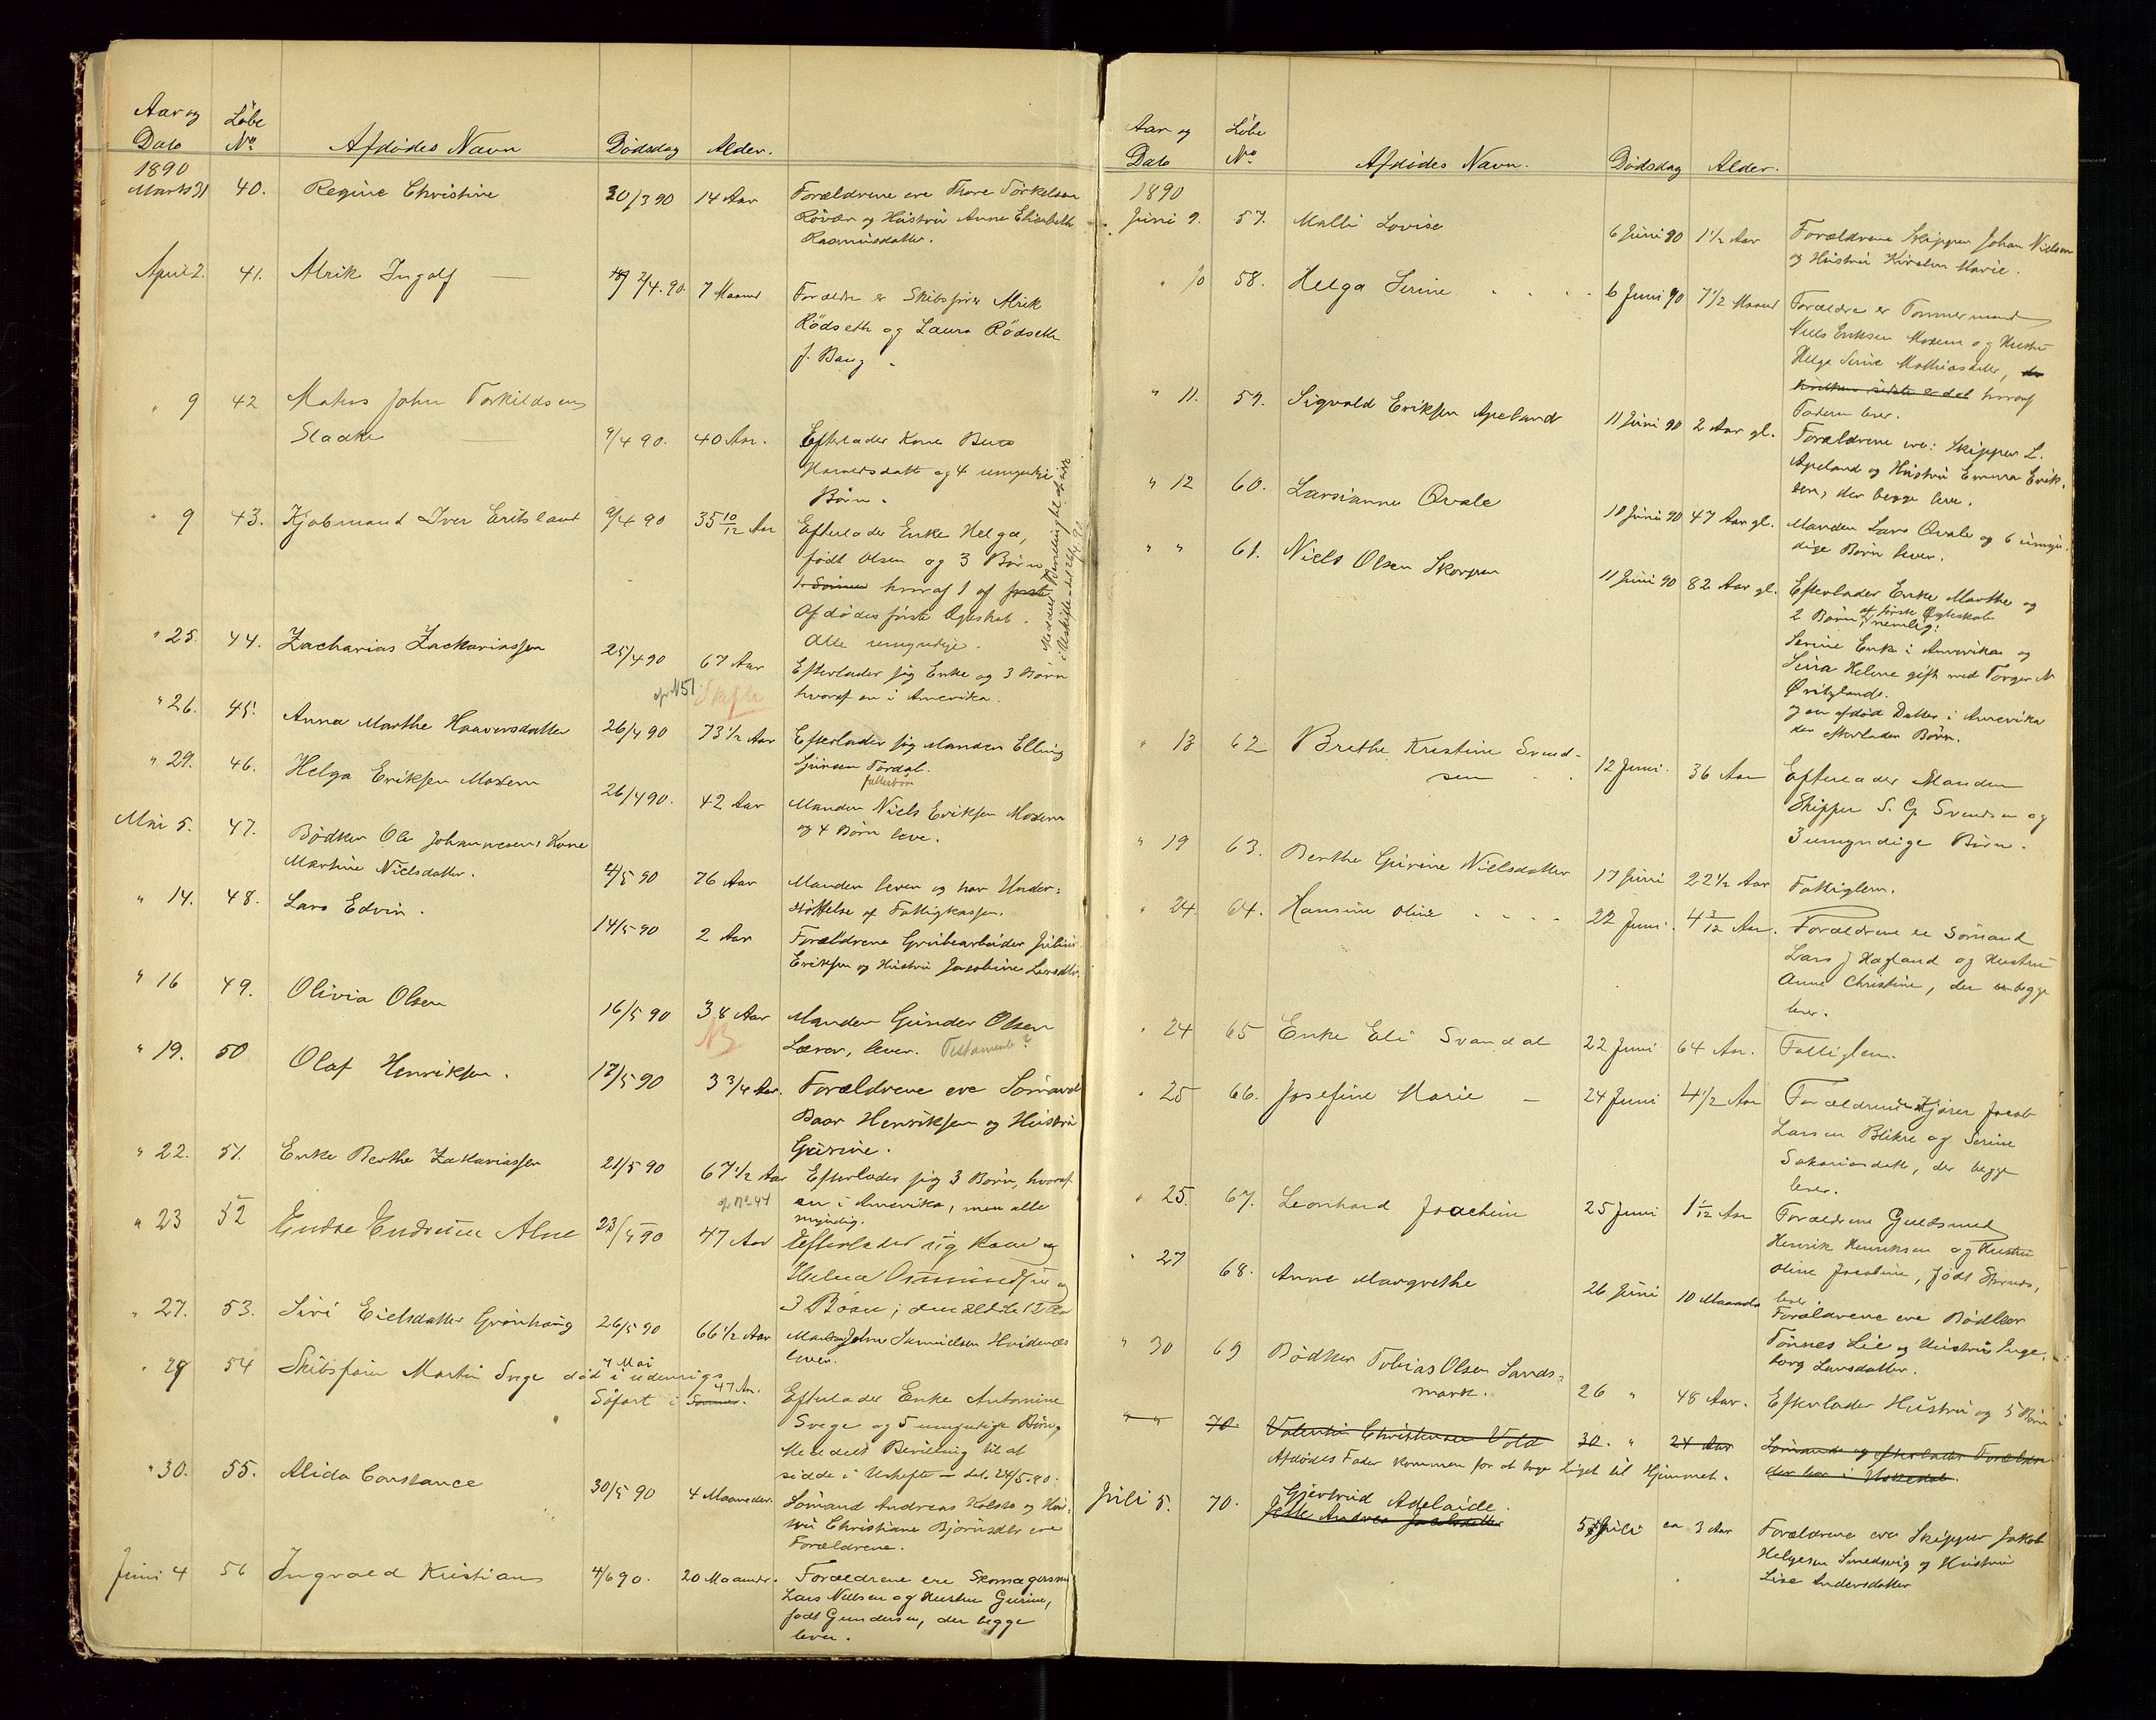 Aar og Løbe
Dato No. Afdødes Navn Dødsdag Alder.
1890
Marts 31 40. Regine Christine 30/3 90 14 Aar Forældrene ere Thore Törkelsen
Røvær og Hústrú Anne Elisabeth
Rasmusdatter.
April 2. 41. Alrik Ingolf 2/4. 90. 7 Maand Forældre er Skibsfører Alrik
Rødseth og Laura Rødseth
f. Bang.
" 9 42 John Torkildsen
9/4 90. 40 Aar. Efterlader Kone
og 4 umyndige
Børn.
" 9 43. Kjøbmand Iver Eritsland 9/4 90 35 10/12 Aar Efterlader Enke Helga,
født Olsen og 3 Børn
hvoraf 1 af
Afdødes første Ægteskab.
Alle umyndige.
" 25. 44. Zacharias Zachariassen 25/4 90 67 Aar Efterlader sig Enke og 3 Børn
cfr N 51 Skifte hvoraf en i Amerika.
" 26. 45. Anna Marthe Haavorsdatter 26/4 90 73 1/2 Aar Efterlader sig Manden Elling
Tordal.
fællesbørn
" 29. 46. Helga Eriksen Moxern 26/4 90. 42 Aar Manden Niels Eriksen Moxern
og 4 Børn leve.
Mai 5. 47. Bødker Ole Johannesens Kone
Martine Nielsdatter. 4/5 90 76 Aar Manden lever og har Under-
støttelse af Fattigkassen.
" 14. 48. Lars Edvin. 14/5 90 2 Aar Forældrene Grubearbeider Július
Eriksen og Hústrú Jacobine Larsdtr.
" 16 49. Olivia Olsen 16/5 90 38 Aar Manden Gúnder Olsen
NB Lærer, lever. Testamente?
" 19. 50 Olaf Henriksen. 17/5 90 3 3/4 Aar. Forældrene ere Sömand
Baar Henriksen og Hústrú
Gúrine.
" 22. 51. Enke Berthe Zakariassen 21/5 90 67 1/2 Aar Efterlader sig 3 Børn, hvoraf
cfr No 44 en i Amerika, men alle
myndig.
" 23 52 Endre Endresen Alne 23/5 90 47 Aar Efterlader sig Kone
Helena Osmundsen og
3 Børn;
" 27. 53. Siri Eielsdatter Grönhaúg 26/5 90 66 1/2 Aar Manden John Samúelsen Hvidenæs
lever.
" 29 54 Skibsfører Martin Svege død i udenrigs 7 Mai
Söfart i 47 Aar. Efterlader Enke Antonine
Svege og 5 umyndige Børn
Meddelt Bevilling til at
sidde i Uskifte - dat. 24/5 90.
" 30. 55. Alida Constance 30/5 90 4 Maaneder. Sömand Andreas Kolstø og Hú-
strú Christiane Björnsdtr ere
Forældrene.
Júni 4 56 Ingvald Kristian 4/6 90. 20 Maaneder. Forældrene ere Skomagersvend
Lars Nielsen og Hustru Gurine,
født Gundersen, der begge
lever.
Meddelt Bevilling til at sidde
i Uskifte dat 26/4 90.
Aar og Løbe
Dato No. Afdødes Navn. Dødsdag Alder.
1890
Júni 9. 57. Malli Lovise 6 Júni 90 1 1/2 Aar Forældrene Skipper Johan Nielsen
og Hústrú Kirsten Marie.
" 10 58. Helga Serine 6 Juni 90 7 1/2 Maaned Forældre er Tømmermand
Niels Eriksen Moxern og Hustru
Helga Serine Mathiasdatter,
hvoraf
Faderen lever.
" 11. 59. Sigvald Eriksen Apeland 11 Júni 90 2 Aar gl. Forældrene ere: Skipper L.
Apeland og Hústrú Emma Erik-
sen, der begge leve.
" 12 60. Larsianne Qvale 10 Júni 90 47 Aar gl. Manden Lars Qvale og 6 úmyn-
dige Børn lever.
" " 61. Niels Olsen Skorpen 11 Júni 90 82 Aar gl. Efterlader Enke Marthe og
2 Børn af første Ægteskab, nemlig:
Serine Enke i Amerika og
Sina Helene gift med Torger N
Øvitsland.
og en afdød Datter i Amerika
der efterlader Børn.
" 13 62 Brethe Kristine Svend-
sen 12 Juni. 36 Aar Efterlader Manden
Skipper S. G. Svendsen og
3 umyndige Børn.
" 19 63. Berthe Gúrine Nielsdatter 17 Júni 22 1/2 Aar Fattiglem.
" 24. 64. Hansine Oline 22 Juni. 4 3/12 Aar. Forældrene er Sømand
Lars J Hagland og Hustru
Anne Christine, der begge
lever.
" 24 65 Enke Eli Svandal 22 Juni 64 Aar. Fattiglem.
" 25 66. Josefine Marie 24 Juni 4 1/2 Aar Forældrene Kjører Jacob
Larsen Blikre og Serine
Sakariasdatter, der begge
lever.
" 25. 67. Leonhard Joachim 25 Juni 1 1/12 Aar Forældrene Guldsmed
Henrik Henriksen og Hustru
Oline Jacobine, født
lever.
" 27 68. Anne Margrethe 26 Júni 10 Maaneder Forældrene ere Bødker
Tønnes Lie og Hústrú Inge-
borg Larsdatter.
" 30 69 Bødker Tobias Olsen Sands-
mark. 26 " 48 Aar. Efterlader Hústrú og 5 Børn
" " 70. Valentin Christensen Vold 30. " 24 Aar Sömand og efterlader Forældre
der bor i
Afdødes Fader kommen for at tage Liget til Hjemmet.
Júli 5. 70. Gjertrud Adelaide.
Jette Andrea Jacobsdatter 5 Júli ca 3 Aar Forældrene ere Skipper Jakob
Helgesen Smedsvig og Hústrú
Lise Andersdatter